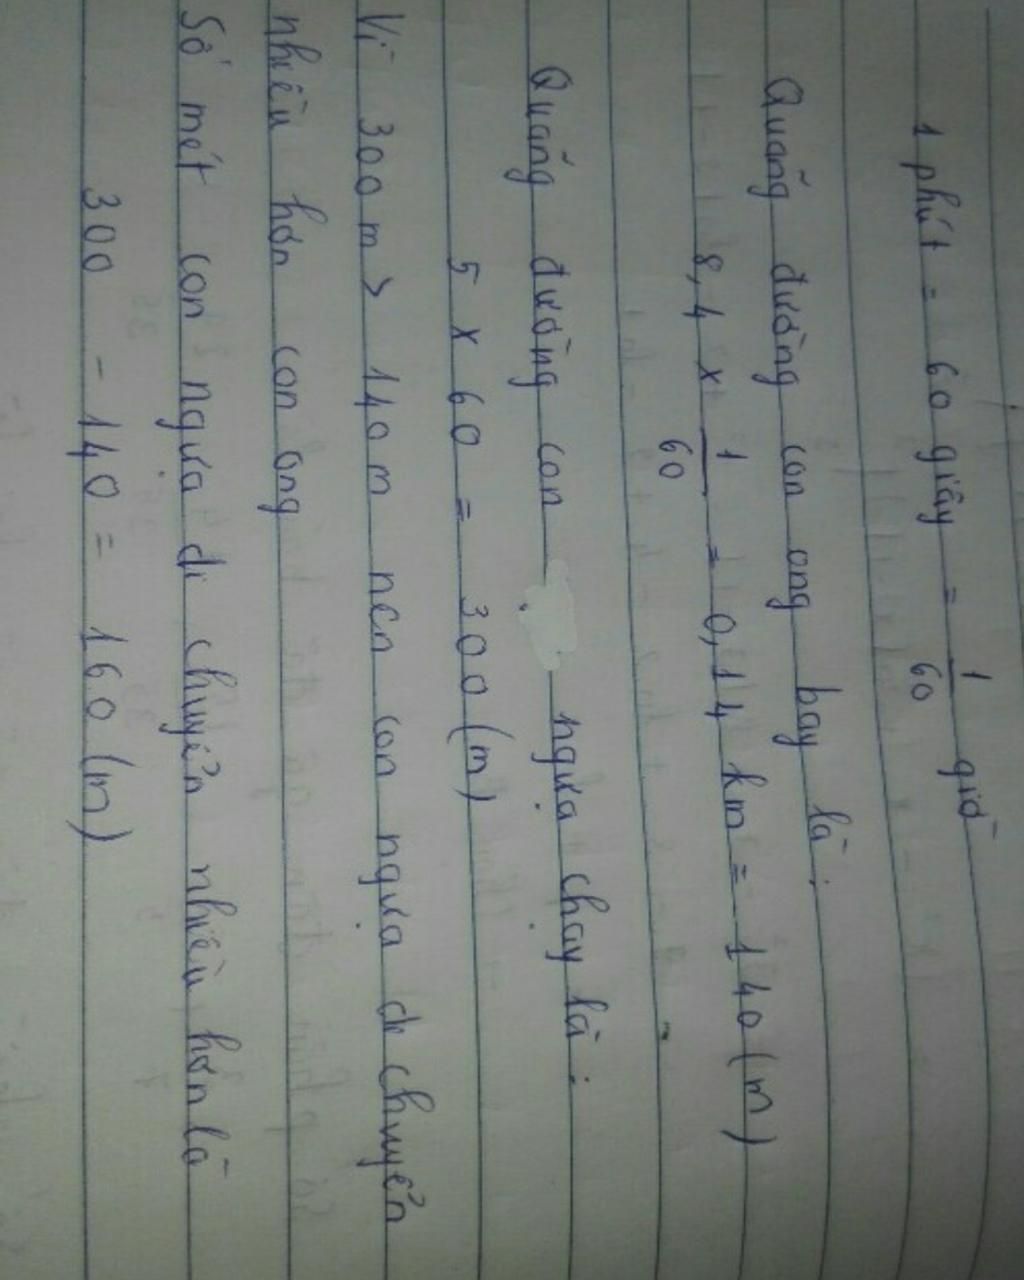 1 phút = 60 giây = 1/60 giờ
Quãng đường con ong bay là:
8,4 x 1/60 = 0,14 km = 140 (m)
Quãng đường con ngựa chạy là:
5 x 60 = 300 (m)
Vì 300 m > 140 m nên con ngựa di chuyển
nhiều hơn con ong
Số mét con ngựa di chuyển nhiều hơn là
300 - 140 = 160 (m)